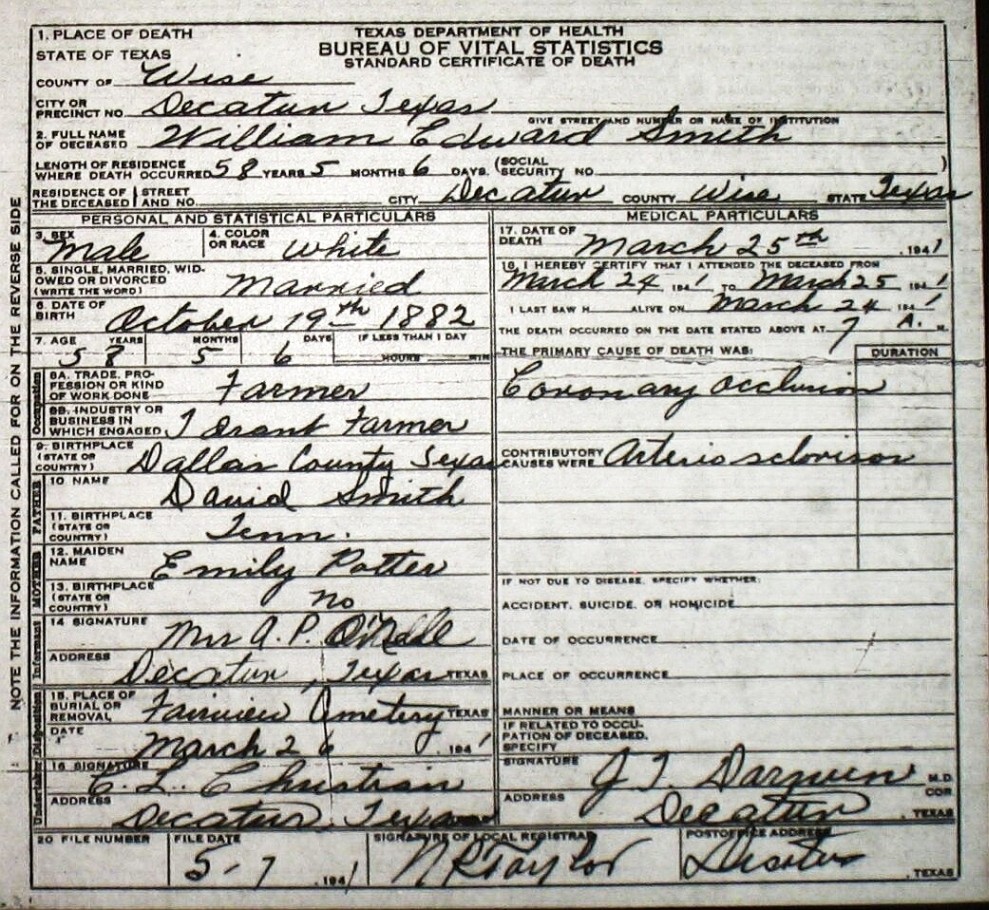 1. PLACE OF DEATH
STATE OF TEXAS
TEXAS DEPARTMENT OF HEALTH
BUREAU OF VITAL STATISTICS
STANDARD CERTIFICATE OF DEATH
COUNTY OF Wise
CITY OR PRECINCT NO. Decatur Texas
GIVE STREET AND NUMBER OR NAME OF INSTITUTION
2. FULL NAME OF DECEASED William Edward Smith
LENGTH OF RESIDENCE WHERE DEATH OCCURRED 58 YEARS 5 MONTHS 6 DAYS. (SOCIAL SECURITY NO. )
RESIDENCE OF THE DECEASED STREET AND NO. CITY Decatur COUNTY Wise STATE Texas
PERSONAL AND STATISTICAL PARTICULARS
3. SEX Male 4. COLOR OR RACE White
5. SINGLE, MARRIED, WIDOWED OR DIVORCED (WRITE THE WORD) Married
6. DATE OF BIRTH October 19th 1882
7. AGE YEARS MONTHS DAYS IF LESS THAN 1 DAY
58 5 6 HOURS MIN
8A. TRADE, PROFESSION OR KIND OF WORK DONE Farmer
8B. INDUSTRY OR BUSINESS IN WHICH ENGAGED Farmer
9. BIRTHPLACE (STATE OR COUNTRY) Dallas County Texas
10 NAME David Smith
11. BIRTHPLACE (STATE OR COUNTRY) Tenn.
12. MAIDEN NAME Emily Potter
13. BIRTHPLACE (STATE OR COUNTRY) no
14 SIGNATURE Mrs A. P. O'Neall
ADDRESS Decatur, Texas TEXAS
15. PLACE OF BURIAL OR REMOVAL Fairview Cemetery TEXAS
DATE March 26 194 1
16 SIGNATURE C. L. Christian
ADDRESS Decatur, Texas
MEDICAL PARTICULARS
17. DATE OF DEATH March 25th, 1941
18. I HEREBY CERTIFY THAT I ATTENDED THE DECEASED FROM
March 24, 194 1 TO March 25, 194 1
I LAST SAW H ALIVE ON March 24 194 1
THE DEATH OCCURRED ON THE DATE STATED ABOVE AT 7 A. M.
THE PRIMARY CAUSE OF DEATH WAS: DURATION
Coronary Occlusion
CONTRIBUTORY CAUSES WERE Arterio
IF NOT DUE TO DISEASE, SPECIFY WHETHER:
ACCIDENT, SUICIDE, OR HOMICIDE
DATE OF OCCURRENCE
PLACE OF OCCURRENCE
MANNER OR MEANS
IF RELATED TO OCCUPATION OF DECEASED, SPECIFY
SIGNATURE M.D. COR
ADDRESS Decatur, TEXAS
20 FILE NUMBER FILE DATE 5-7, 1941
SIGNATURE OF LOCAL REGISTRAR N R Taylor
POSTOFFICE ADDRESS Decatur, TEXAS
NOTE THE INFORMATION CALLED FOR ON THE REVERSE SIDE
Occupation
FATHER
MOTHER
Informant
Disposition
Undertaker